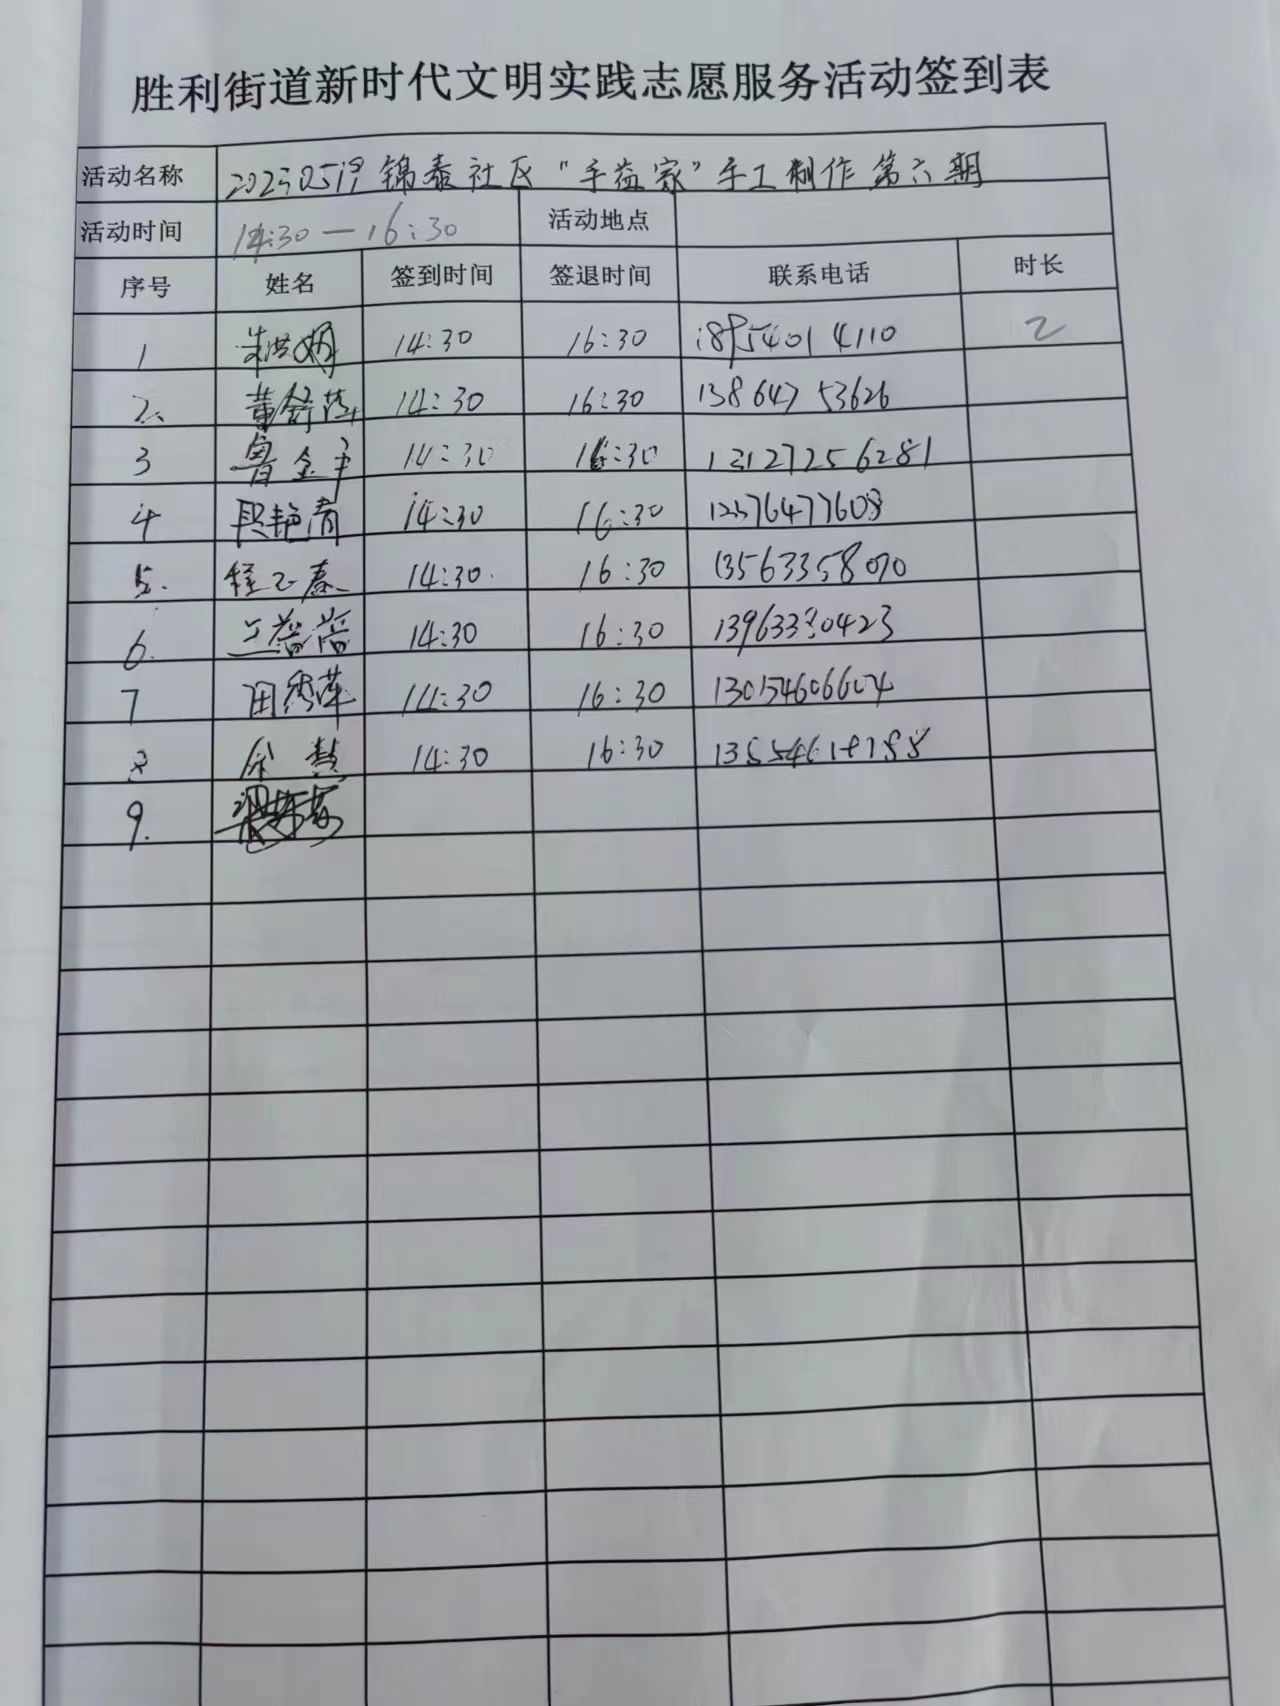 胜利街道新时代文明实践志愿服务活动签到表
活动名称 锦泰社区“手益家”手工制作第六期
活动时间 14:30—16:30 活动地点
序号 姓名 签到时间 签退时间 联系电话 时长
1 14:30 16:30 18954014110 2
2、 14:30 16:30 13864753626
3 鲁金 14:30 16:30 13127256281
4 段艳清 14:30 16:30
5. 14:30. 16:30 13563358070
6. 14:30 16:30
7 田秀萍 14:30 16:30 130154606604
8 14:30 16:30
9.